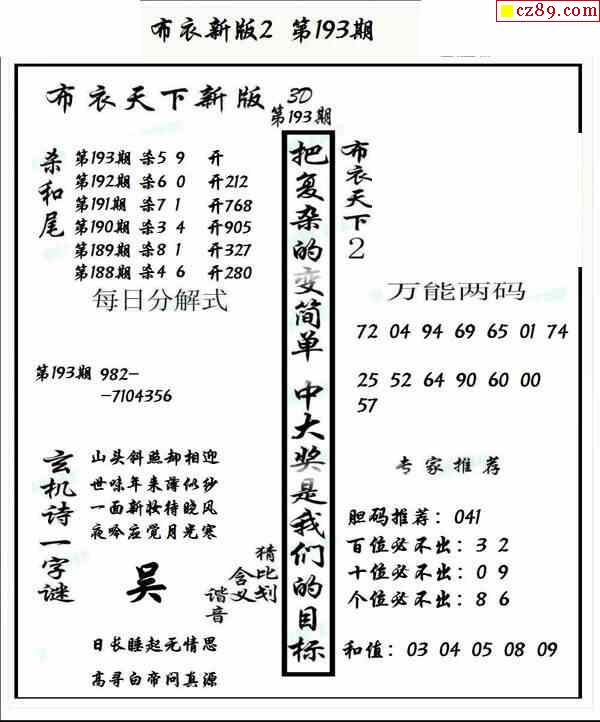 cz89.com
布衣新版2 第193期
布衣天下新版 3D
第193期
杀和尾
第193期 杀5 9 开
第192期 杀6 0 开212
第191期 杀7 1 开768
第190期 杀3 4 开905
第189期 杀8 1 开327
第188期 杀4 6 开280
每日分解式
第193期 982-
-7104356
玄机诗一字谜
山头斜照却相迎
世味年来薄似纱
一面新妆待晓风
夜吟应觉月光寒
吴
猜比划
含义
谐音
日长睡起无情思
高寻白帝问真源
把复杂的变简单 中大奖是我们的目标
布衣天下2
万能两码
72 04 94 69 65 01 74
25 52 64 90 60 00
57
专家推荐
胆码推荐：041
百位必不出：3 2
十位必不出：0 9
个位必不出：8 6
和值：03 04 05 08 09